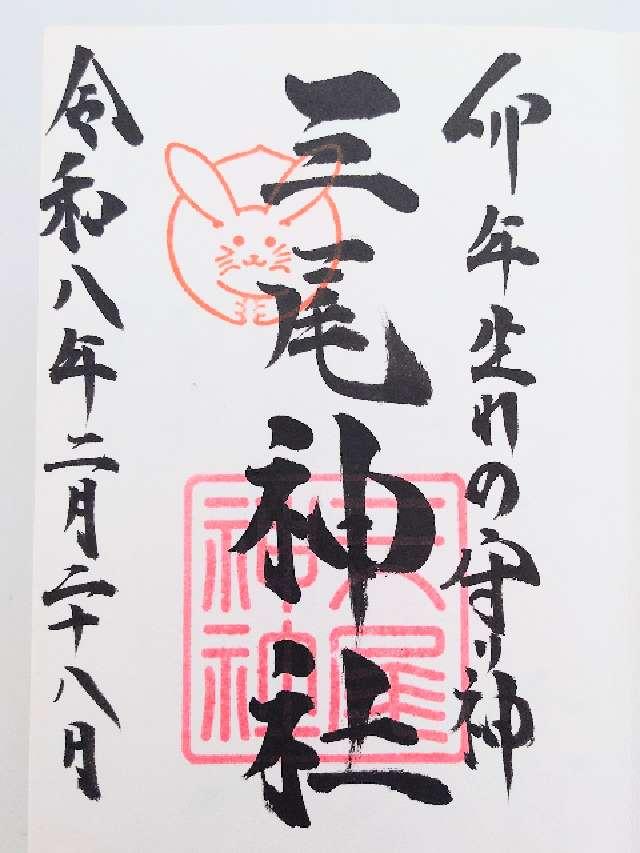 卯年生れの守り神
三尾神社
令和八年二月二十八日